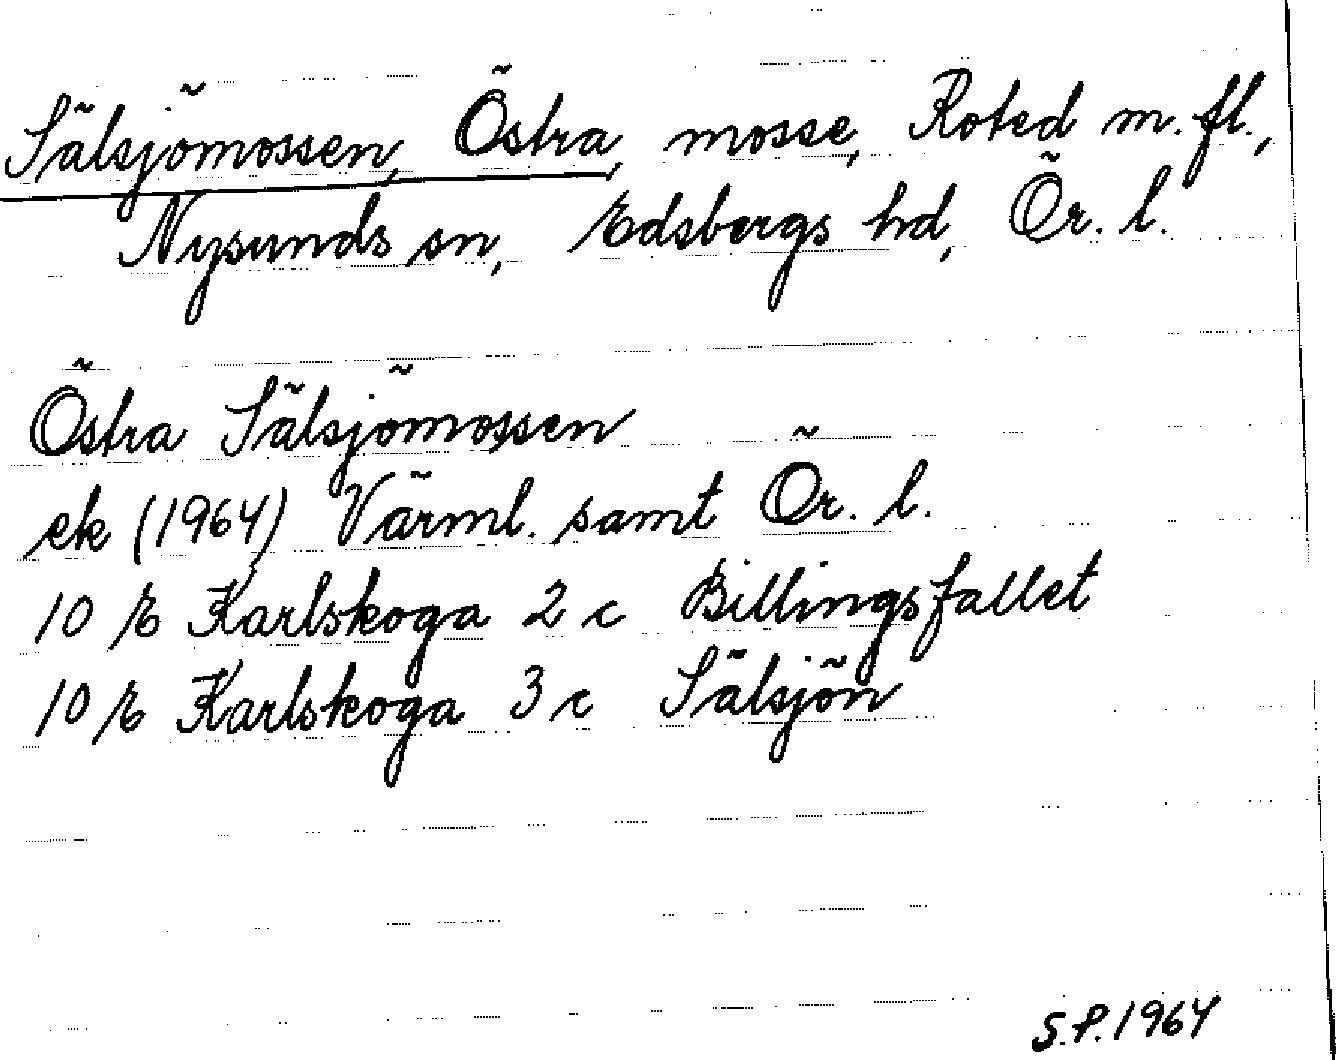 Sälsjömossen, Östra, mosse, Roted m. fl.,
Nysunds sn, Edsbergs hd, Ör. l.
Östra Sälsjömossen
ek (1964) Värml. samt Ör. l.
10 E Karlskoga 2 c Billingsfallet
10 E Karlskoga 3 c Sälsjön
S.P. 1964